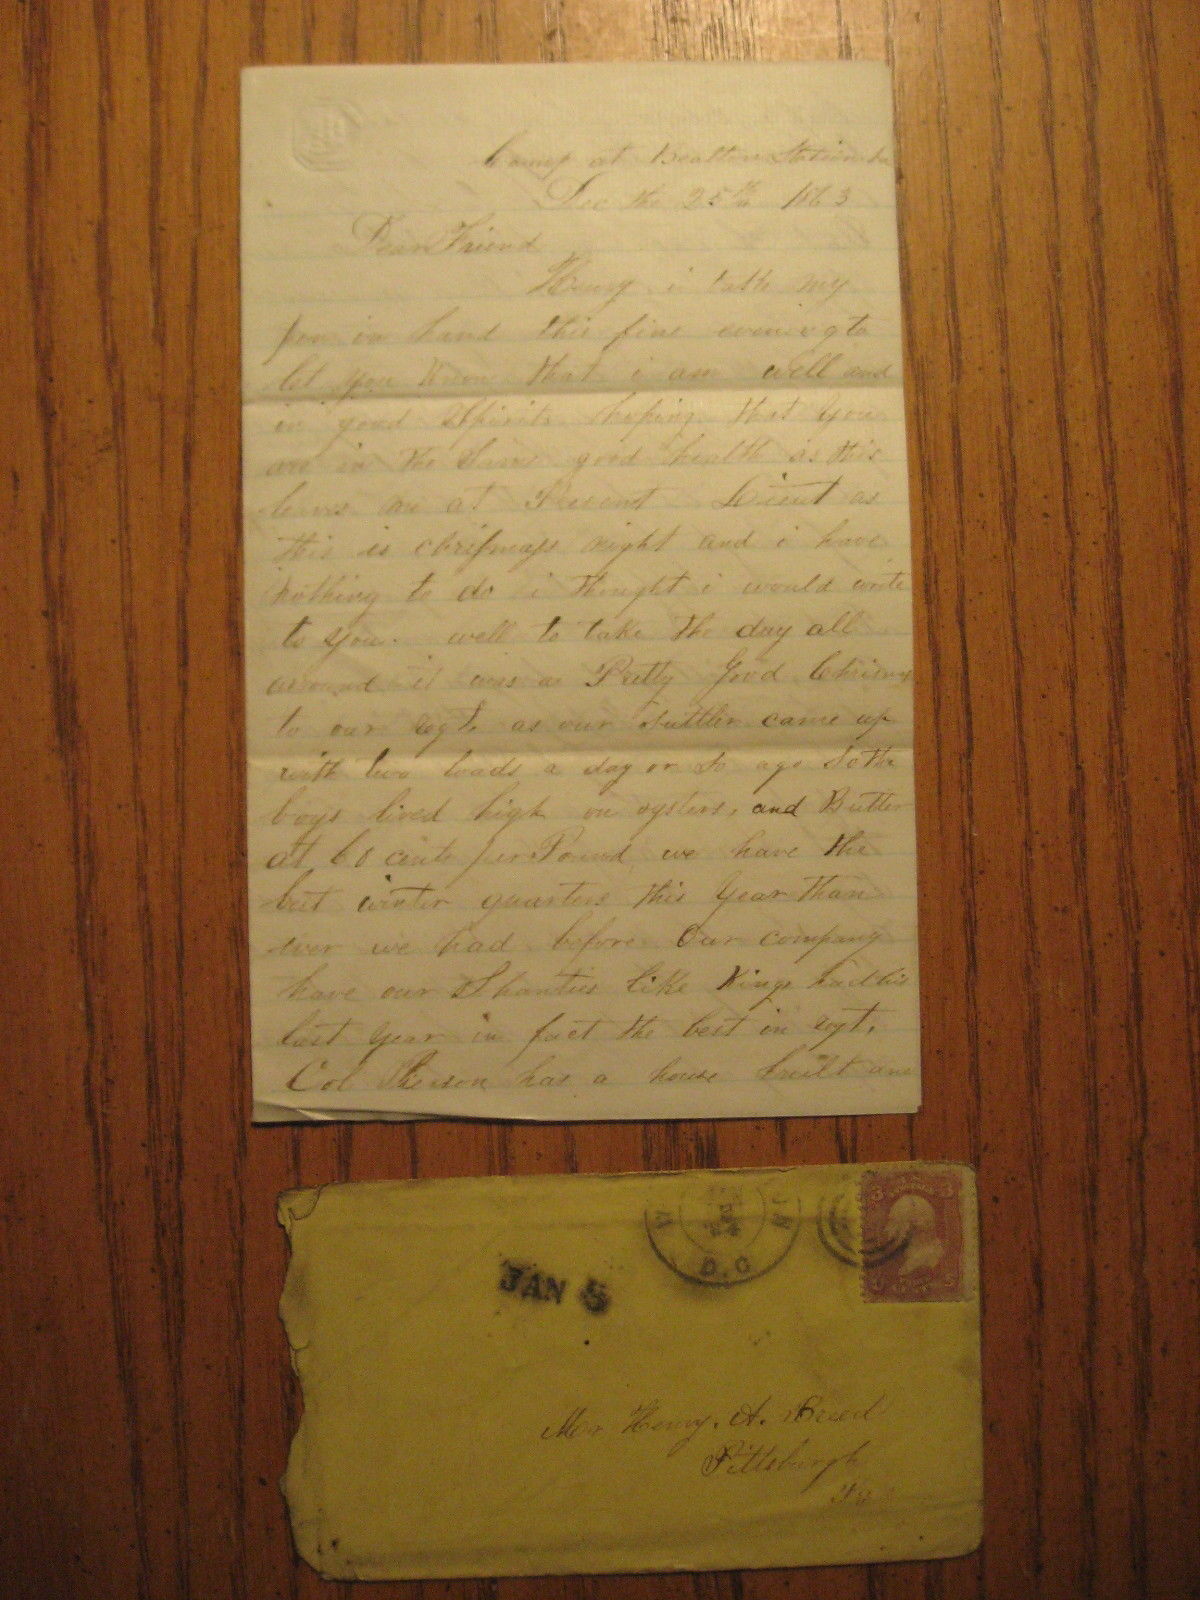 Camp at Bealton Station Va
Dec the 25th 1863
Dear Friend
Henry i take my
pen in hand this fine evening to
let you Know that i am well and
in good Spirits hoping that you
are in the Same good health as this
leaves me at Present. Lieut as
this is chrismass night and i have
nothing to do i thought i would write
to you. well to take the day all
around it was a Pretty Good Chrismas
to our regt as our Suttler came up
with two loads a day or so ago So the
boys lived high on oysters, and Butter
at 60 cents per Pound we have the
best winter quarters this Year than
ever we had before Our company
have our Shanties like Kings
last Year in fact the best in regt.
Col has a house built and
JAN 5
D.C.
3 3
Mr Henry. A. Breed
Pittsburgh
Pa